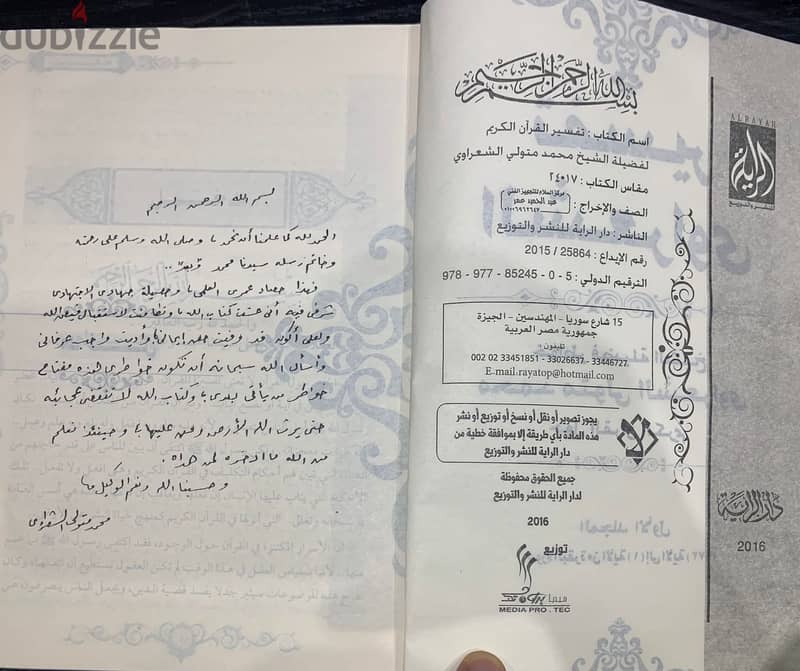 dubizzle
بسم الله الرحمن الرحيم
الحمد لله كما علمنا أن نحمد، وصلى الله وسلم على رحمته
وخاتم رسله سيدنا محمد وبعد ..
فهذا حصاد عمرى العلمى، وحصيلة جهادى الاجتهادى
شرفى فيه أنى عشت كتاب الله، وتطامنت لاستقبال فيض الله
ولعلى أكون قد وفيت حق إيمانى، وأديت واجب عرفانى
وأسأل الله سبحانه أن تكون خواطرى هذه مفتاح
خواطر من يأتى بعدى، وكتاب الله لا تنقضى عجائبه
حتى يرث الله الأرض ومن عليها، وحينئذ نعلم
من الله ما ادخره لمن هداه.
وحسبنا الله ونعم الوكيل
محمد متولى الشعراوى
بسم الله الرحمن الرحيم
اسم الكتاب : تفسير القرآن الكريم
لفضيلة الشيخ محمد متولي الشعراوي
مقاس الكتاب : ١٧×٢٤
الصف والإخراج : مركز السلام للتجهيز الفني
عبد الحميد عمر
الناشر : دار الراية للنشر والتوزيع
رقم الإيداع : 25864 / 2015
الترقيم الدولي : 5 - 0 - 85245 - 977 - 978
15 شارع سوريا - المهندسين - الجيزة
جمهورية مصر العربية
تليفون:
002 02 33451851 - 33026637 - 33446727
E-mail.rayatop@hotmail.com
يجوز تصوير أو نقل أو نسخ أو توزيع أو نشر
هذه المادة بأي طريقة إلا بموافقة خطية من
دار الراية للنشر والتوزيع
جميع الحقوق محفوظة
لدار الراية للنشر والتوزيع
2016
توزيع
ميديا برو تك
MEDIA PRO . TEC
ALRAYAH
الراية
للنشر والتوزيع
دار الراية
2016